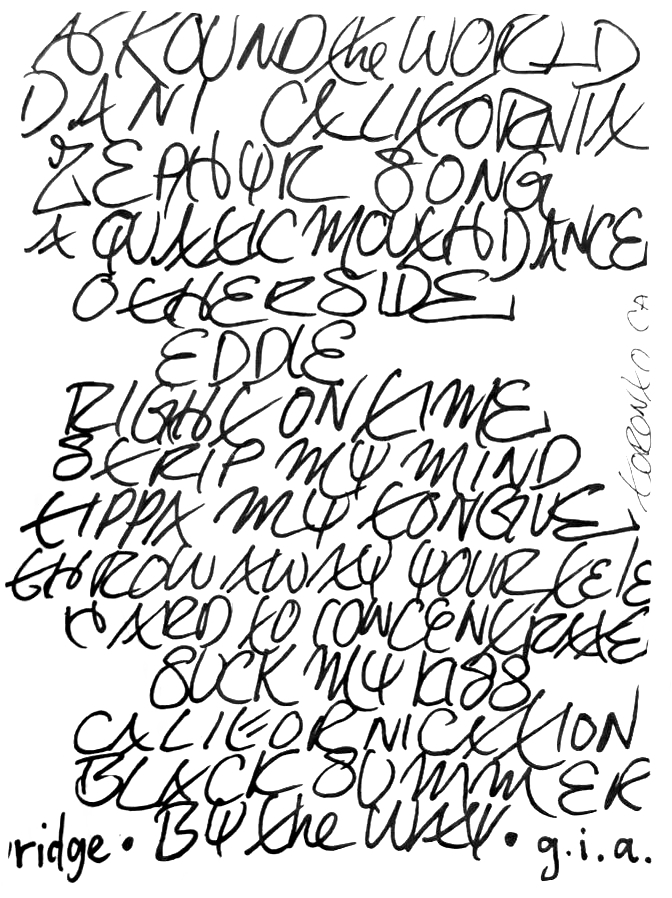 AROUND the WORLD
DANI CALIFORNIA
ZEPHYR SONG
AQUATIC MOUTH DANCE
OTHERSIDE
EDDIE
RIGHT ON TIME
STRIP MY MIND
TIPPA MY TONGUE
THROW AWAY YOUR TELE
HARD TO CONCENTRATE
SUCK MY KISS
CALIFORNICATION
BLACK SUMMER
ridge • BY the WAY • g.i.a.
TORONTO CA